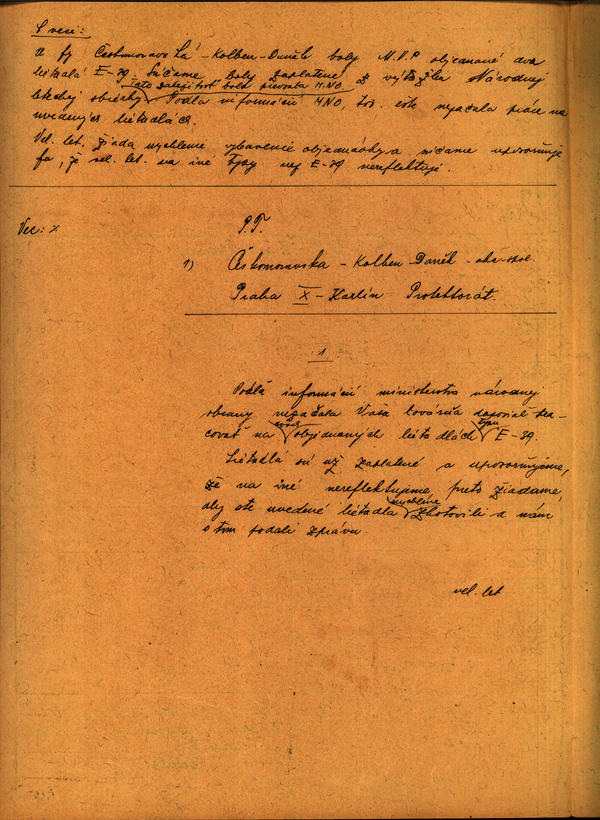 K veci:
U fy Českomoravská-Kolben-Daněk boly M.V.P objednané dva
lietadlá E-39. Súčasne boly zaplatené z výťažku Národnej
Táto záležitosť bola prevzatá MNO.
leteckej obierky. Podľa informácií MNO, tov. ešte nezačala práce na
uvedených lietadlách.
Vel. let. žiada urychlené vybavenie objednávky a súčasne upozorňuje
fu, že vel. let. na iné typy než E-39 nereflektuje.
Vec: x
P.T.
1) Českomoravska - Kolben Daněk - akc. spol.
Praha X - Karlín Protektorát.
1
Podľa informácií ministerstva národnej
obrany nezačala Vaša továrňa doposiaľ pra-
covať na objednaných lietadlách typu E-39.
Lietadlá sú už zaplatené a upozorňujeme,
že na iné nereflektujeme, preto žiadame,
aby ste uvedené lietadla urychlene zhotovili a nám
o tom podali zprávu.
vel. let